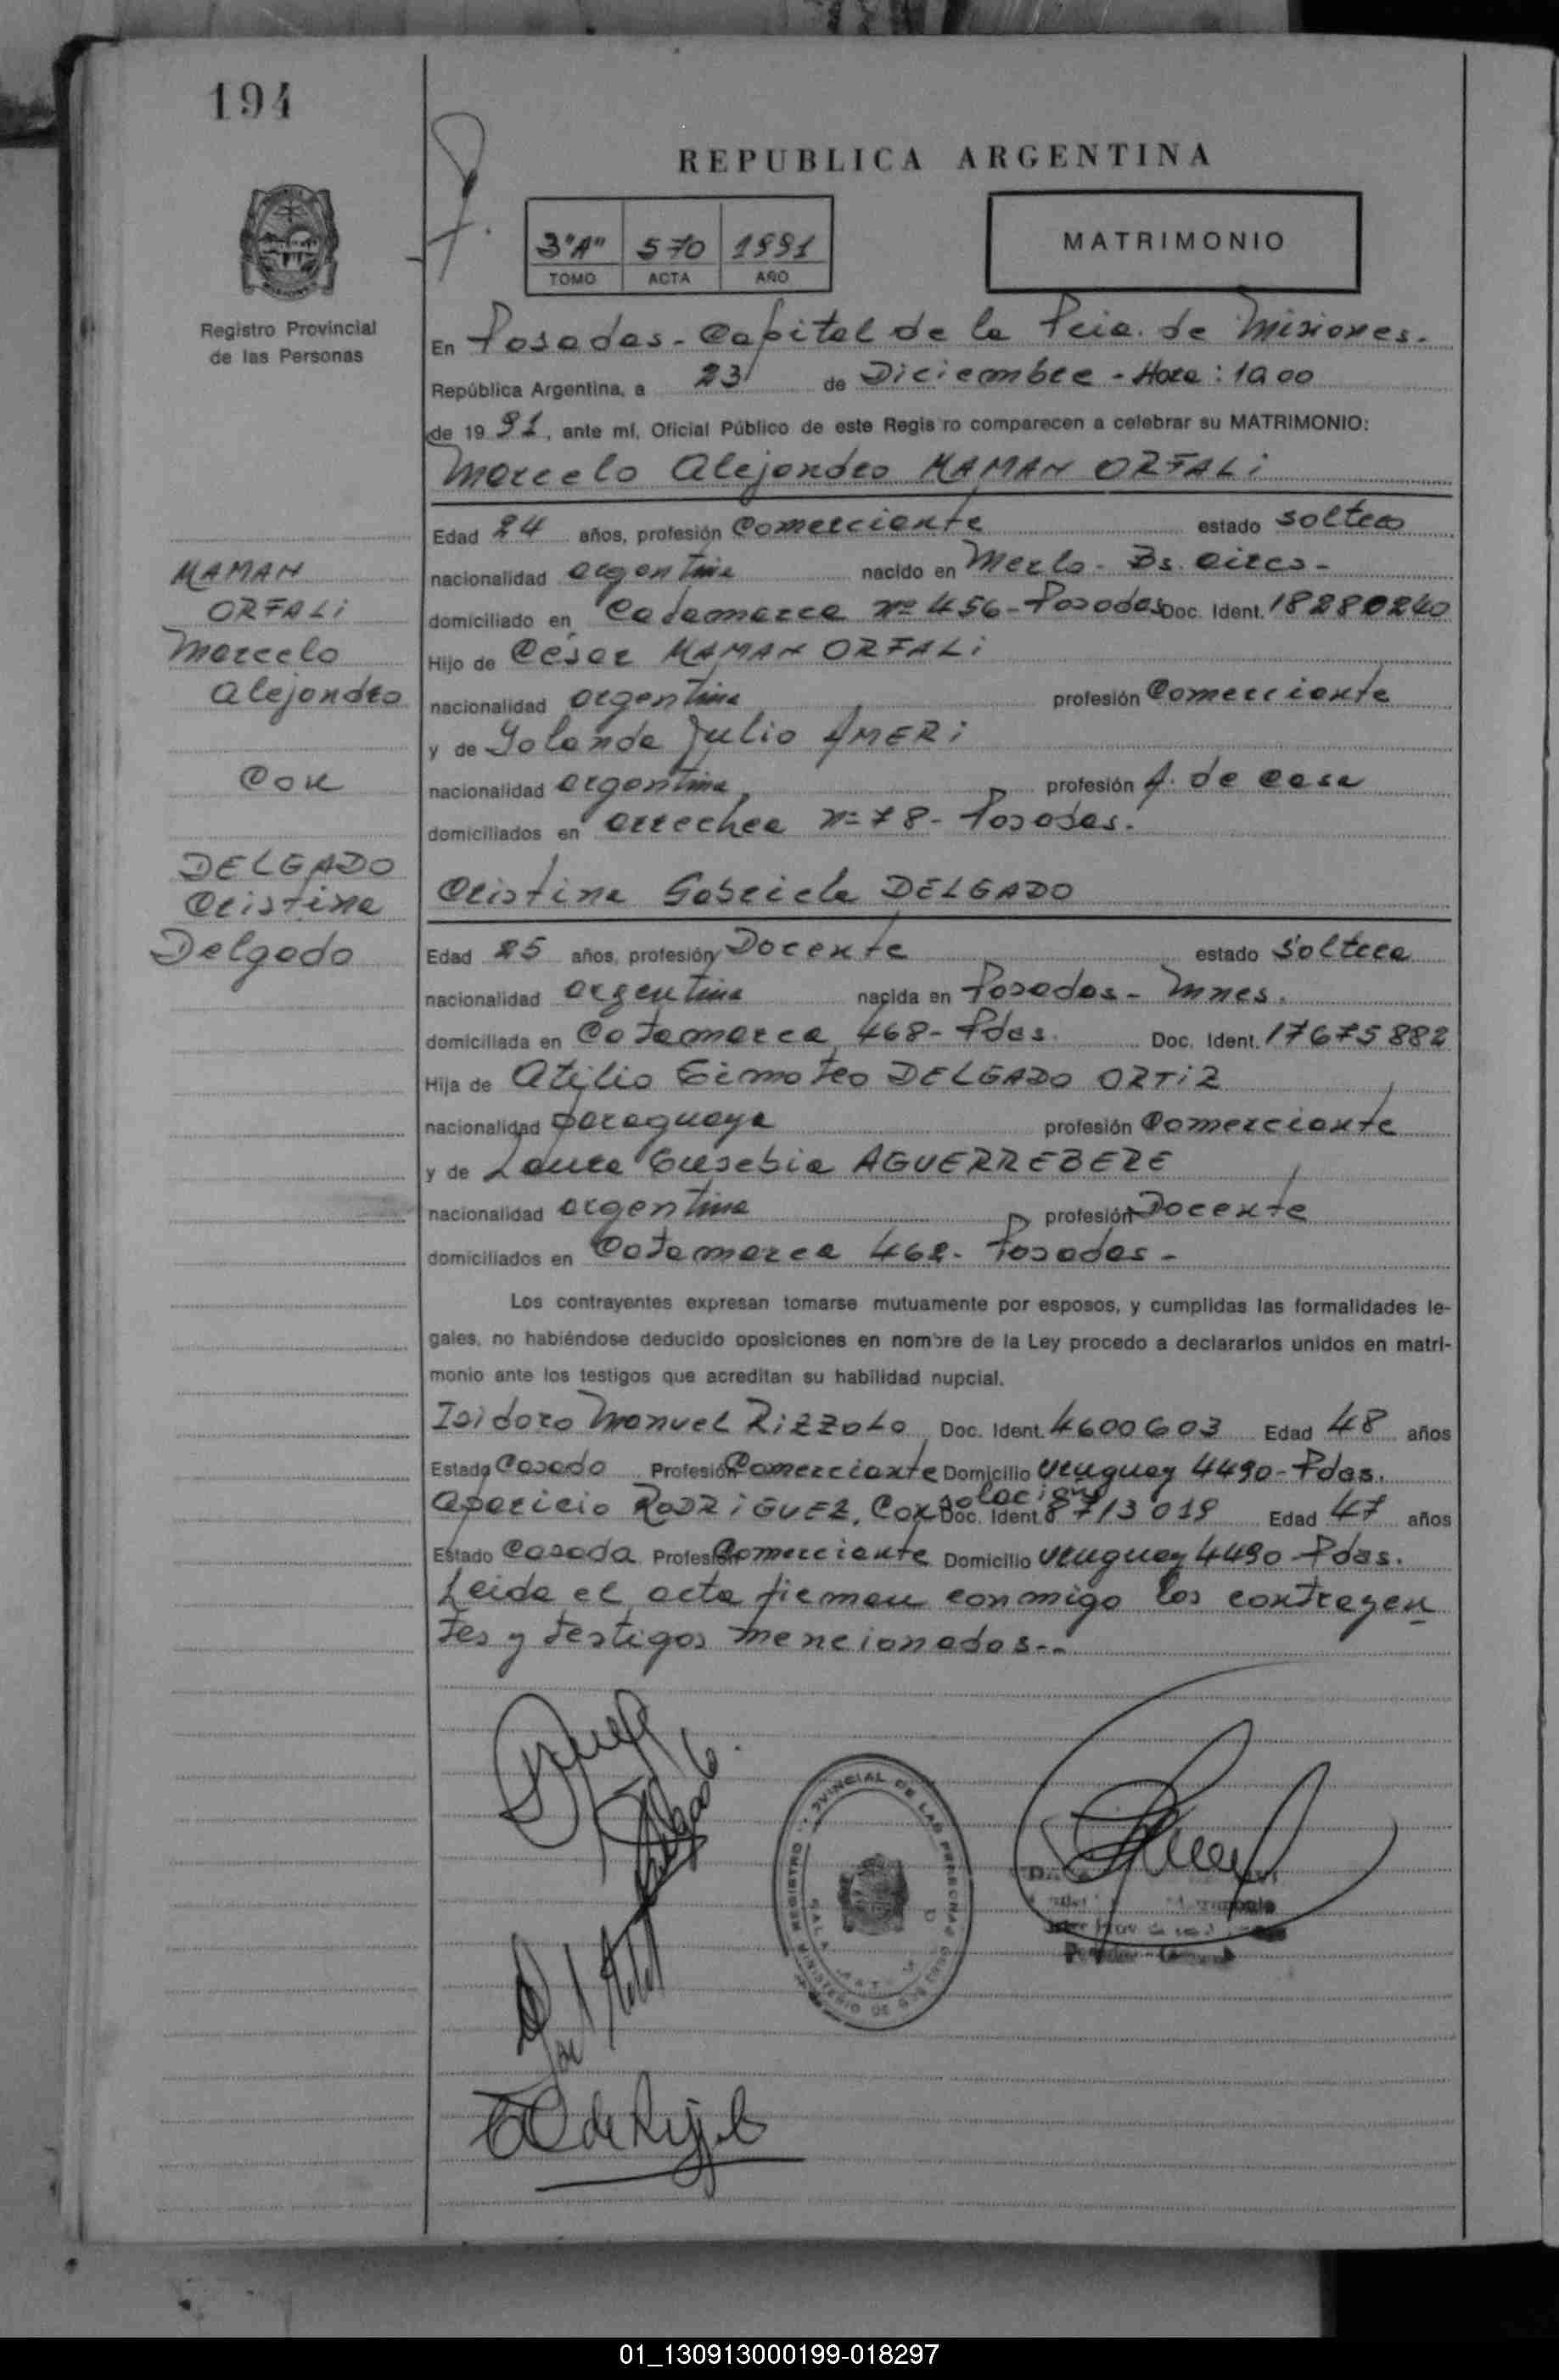 194
REPUBLICA ARGENTINA
3"A" 570 1991
TOMO ACTA AÑO
MATRIMONIO
Registro Provincial
de las Personas
En Posadas - Capital de la Pcia. de Misiones.
República Argentina, a 23 de Diciembre - Hora: 10 00
de 19 91, ante mí, Oficial Público de este Registro comparecen a celebrar su MATRIMONIO:
Marcelo Alejandro MAMAN ORFALI
Edad 24 años, profesión Comerciante estado soltero
nacionalidad argentina nacido en Merlo - Bs. Aires -
domiciliado en Catamarca Nº 456 - Posadas Doc. Ident. 18280240
Hijo de César MAMAN ORFALI
nacionalidad argentina profesión Comerciante
y de Yolanda Julio AMERI
nacionalidad argentina profesión A. de casa
domiciliados en Arrechea Nº 78 - Posadas.
Cristina Gabriela DELGADO
Edad 25 años, profesión Docente estado Soltera
nacionalidad argentina nacida en Posadas - Mnes.
domiciliada en Catamarca 468 - Pdas. Doc. Ident. 17675882
Hija de Atilio Timoteo DELGADO ORTIZ
nacionalidad paraguaya profesión Comerciante
y de Laura Eusebia AGUERREBERE
nacionalidad argentina profesión Docente
domiciliados en Catamarca 468 - Posadas -
MAMAN
ORFALI
Marcelo
Alejandro
Con
DELGADO
Cristina
Delgado
Los contrayentes expresan tomarse mutuamente por esposos, y cumplidas las formalidades le-
gales, no habiéndose deducido oposiciones en nombre de la Ley procedo a declararlos unidos en matri-
monio ante los testigos que acreditan su habilidad nupcial.
Isidoro Manuel RIZZOLO Doc. Ident. 4600603 Edad 48 años
Estado Casado Profesión Comerciante Domicilio Uruguay 4490 - Pdas.
Aparicio RODRIGUEZ, Consolación Doc. Ident. 8713019 Edad 47 años
Estado Casada Profesión Comerciante Domicilio Uruguay 4490 - Pdas.
Leida el acta firman conmigo los contrayen
tes y testigos mencionados --
REGISTRO PROVINCIAL DE LAS PERSONAS
MINISTERIO DE
01_130913000199-018297